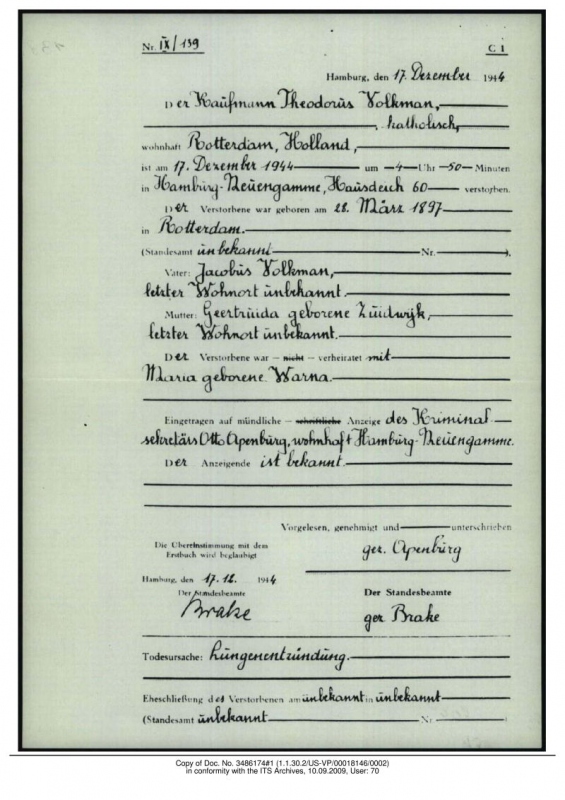 Nr. IX/139 C 1
Hamburg, den 17. Dezember 1944
Der Kaufmann Theodorus Volkman,
, katholisch,
wohnhaft Rotterdam, Holland,
ist am 17. Dezember 1944 um -4- Uhr -50- Minuten
in Hamburg-Neuengamme, Hausdeich 60 verstorben.
Der Verstorbene war geboren am 28. März 1897
in Rotterdam.
(Standesamt unbekannt Nr. ).
Vater: Jacobus Volkman,
letzter Wohnort unbekannt.
Mutter: Geertruida geborene Zuidwijk,
letzter Wohnort unbekannt.
Der Verstorbene war – nicht – verheiratet mit
Maria geborene Warna.
Eingetragen auf mündliche – schriftliche Anzeige des Kriminal-
sekretärs Otto Apenburg, wohnhaft Hamburg-Neuengamme.
Der Anzeigende ist bekannt.
Vorgelesen, genehmigt und unterschrieben
Die Übereinstimmung mit dem
Erstbuch wird beglaubigt
gez. Apenburg
Hamburg, den 17.12. 1944
Der Standesbeamte Der Standesbeamte
Brake gez. Brake
Todesursache: Lungenentzündung.
Eheschließung des Verstorbenen am unbekannt in unbekannt
(Standesamt unbekannt Nr. )
Copy of Doc. No. 3486174#1 (1.1.30.2/US-VP/00018146/0002)
in conformity with the ITS Archives, 10.09.2009, User: 70